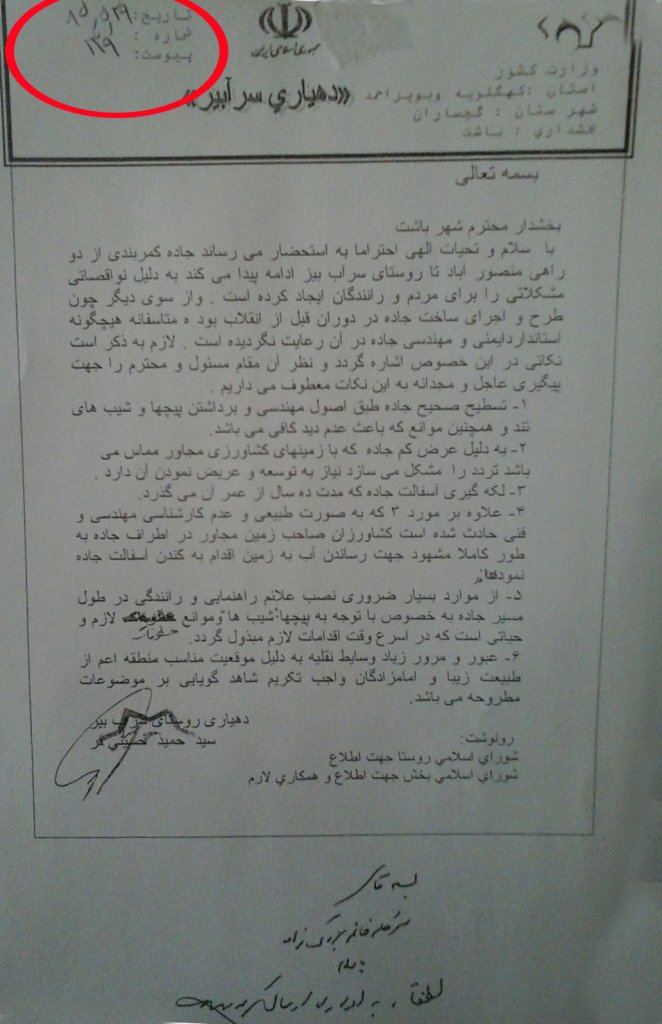 تاریخ: ۸۵/۵/۲۹
شماره :
۱۳۹
پیوست:
جمهوری اسلامی ایران
وزارت کشور
استان :کهگلویه وبویراحمد
شهر ستان : گچساران
بخشداري : باشت
«دهياري سرآبيز»
بسمه تعالی
بخشدار محترم شهر باشت
با سلام و تحیات الهی احتراما به استحضار می رساند جاده کمربندی از دو
راهی منصور آباد تا روستای سرآب بیز ادامه پیدا می کند به دلیل نواقصاتی
مشکلاتی را برای مردم و رانندگان ایجاد کرده است . واز سوی دیگر چون
طرح و اجرای ساخت جاده در دوران قبل از انقلاب بود ه متاسفانه هیچگونه
استانداردایمنی و مهندسی جاده در آن رعایت نگردیده است . لازم به ذکر است
نکاتی در این خصوص اشاره گردد و نظر آن مقام مسئول و محترم را جهت
پیگیری عاجل و مجدانه به این نکات معطوف می داریم .
۱- تسطیح صحیح جاده طبق اصول مهندسی و برداشتن پیچها و شیب های
تند و همچنین موانع که باعث عدم دید کافی می باشد.
۲- به دلیل عرض کم جاده که با زمینهای کشاورزی مجاور مماس می
باشد تردد را مشکل می سازد نیاز به توسعه و عریض نمودن آن دارد .
۳- لکه گیری آسفالت جاده که مدت ده سال از عمر آن می گذرد.
۴- علاوه بر مورد ۳ که به صورت طبیعی و عدم کارشناسی مهندسی و
فنی حادث شده است کشاورزان صاحب زمین مجاور در اطراف جاده به
طور کاملا مشهود جهت رساندن آب به زمین اقدام به کندن آسفالت جاده
نموده‌اند
۵- از موارد بسیار ضروری نصب علائم راهنمایی و رانندگی در طول
مسیر جاده به خصوص با توجه به پیچها شیب ها وموانع لازم و
حیاتی است که در اسرع وقت اقدامات لازم مبذول گردد.
۶- عبور و مرور زیاد وسایط نقلیه به دلیل موقعیت مناسب منطقه اعم از
طبیعت زیبا و امامزادگان واجب تکریم شاهد گویایی بر موضوعات
مطروحه می باشد.
دهیاری روستای سرآب بیز
سید حمید حسینی فر
رونوشت:
شوراي اسلامي روستا جهت اطلاع
شوراي اسلامي بخش جهت اطلاع و همکاري لازم
بسمه تعالی
سرکار خانم بزرگ زاد
باسلام
لطفا به اداره راه ارسال گردد